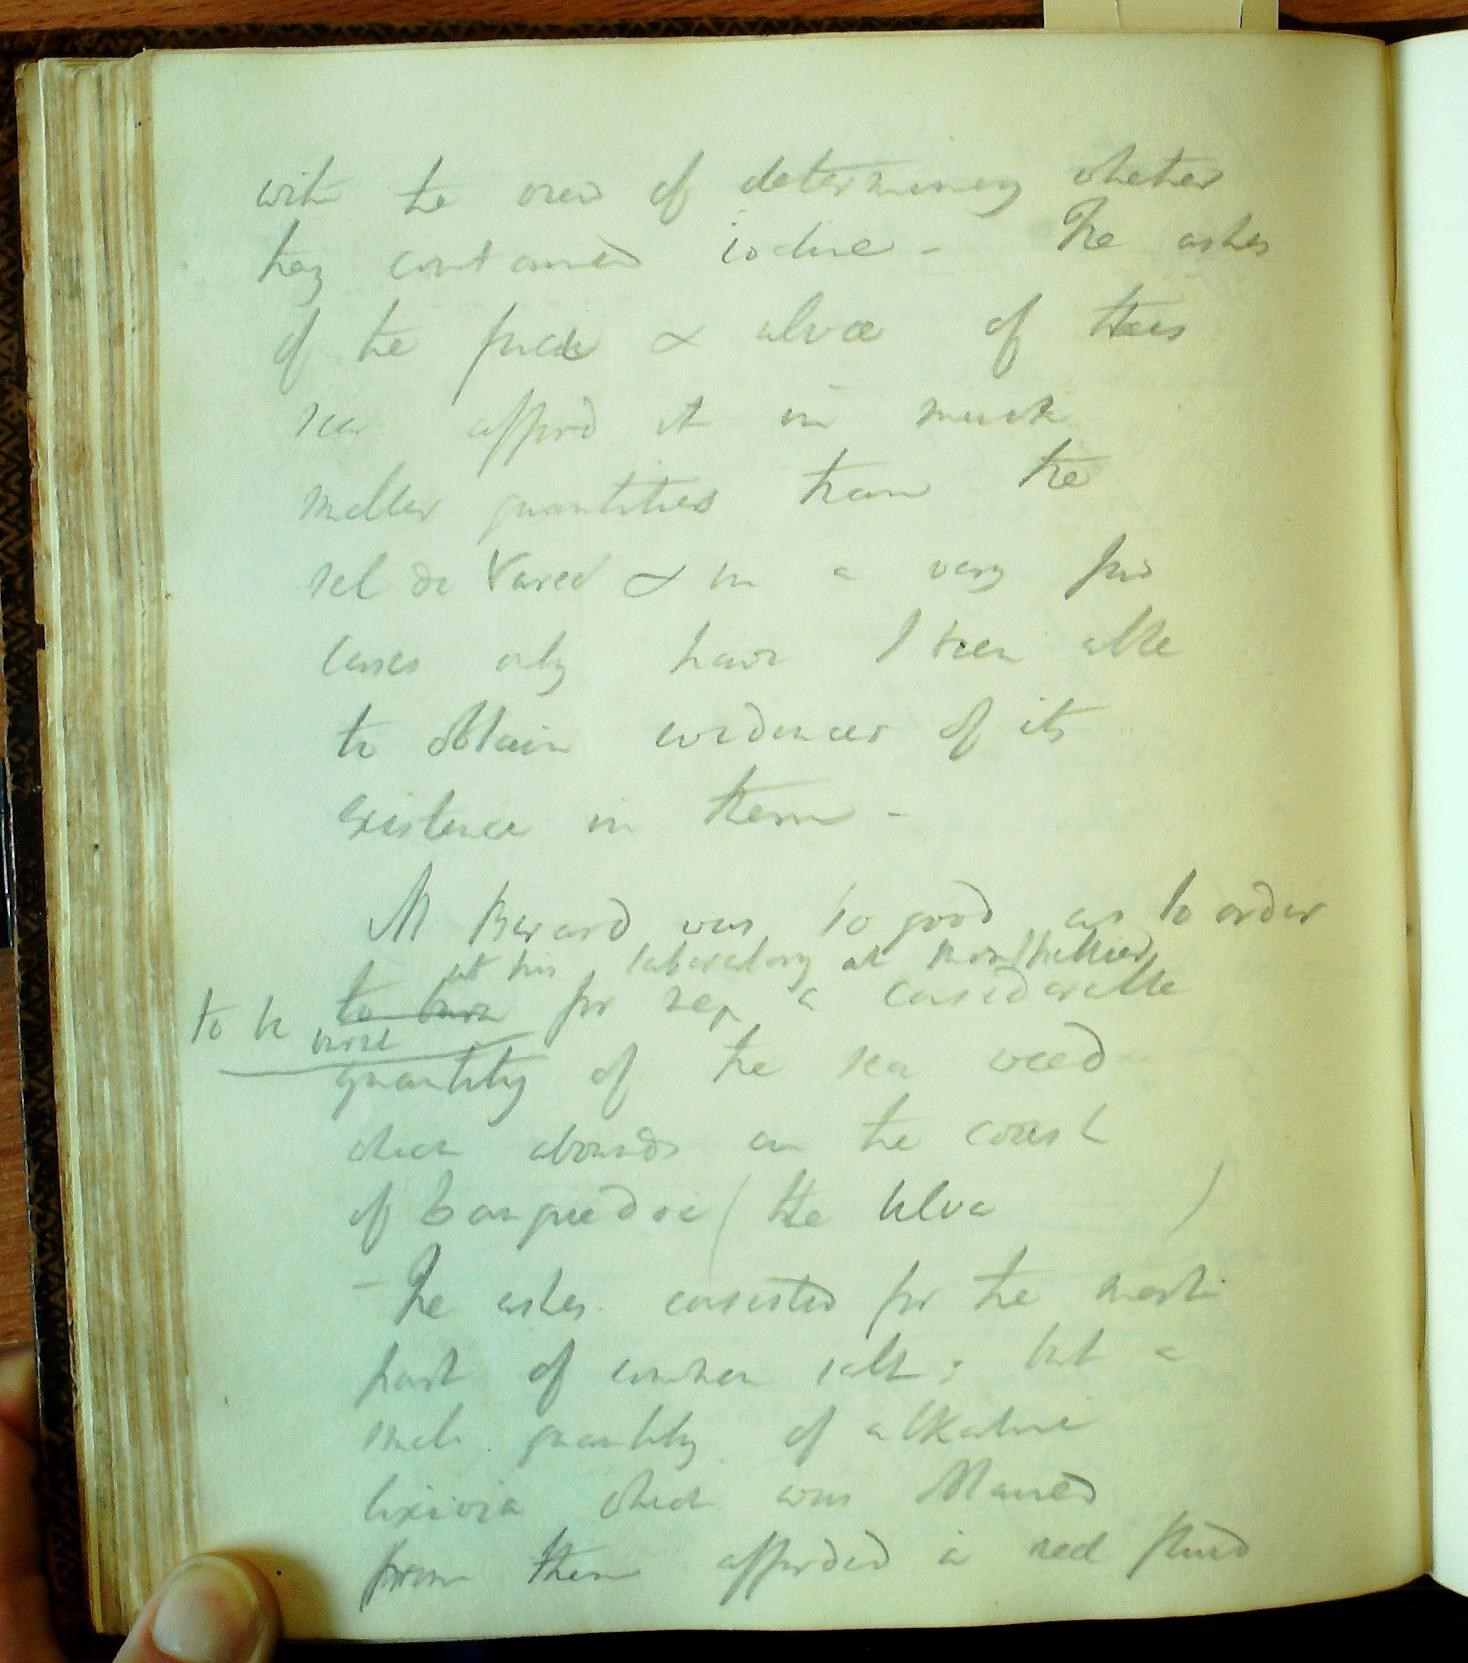 with the view of determining whether
they contained iodine - The ashes
of the fuci & ulvæ of these
sea afford it in much
smaller quantities than the
sel de Varec & in a very few
cases only have I been able
to obtain evidences of its
existence in them -
M Berard was so good as to order
at his laboratory at Montpellier
to burn for me a considerable
to be burnt
quantity of the sea weed
which abounds on the coast
of Languedoc (the Ulva )
- The ashes consisted for the most
part of common salt; but a
small quantity of alkaline
lixivia which was obtained
from them afforded a red fluid